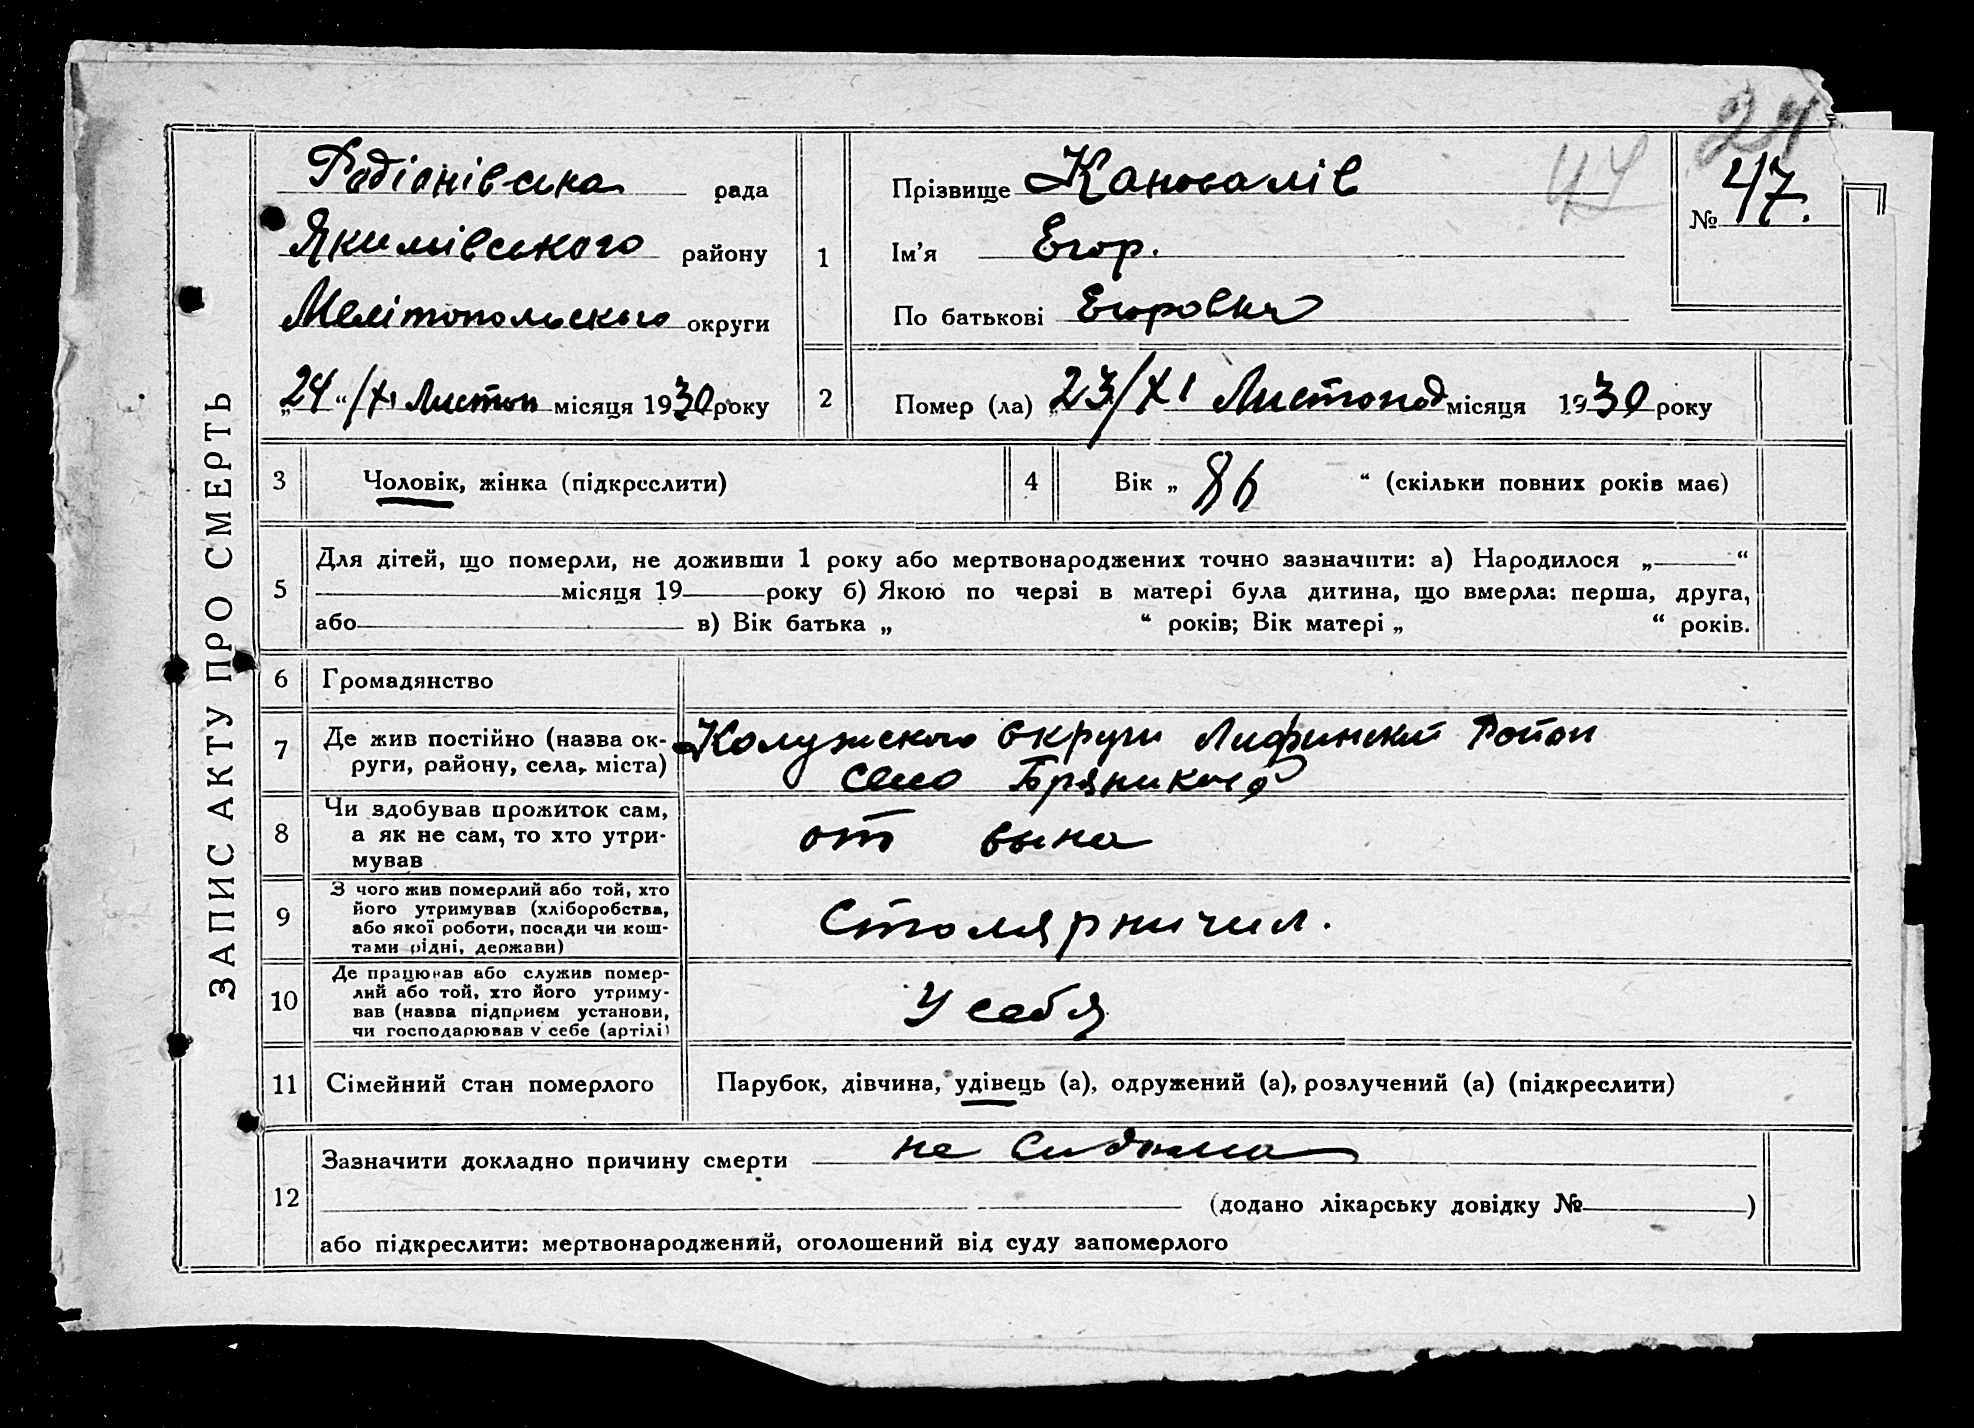 24
47
ЗАПИС АКТУ ПРО СМЕРТЬ
Родіонівська рада
Якимівського району
Мелітопольского округи
„24“/XI Листоп місяця 1930 року
1
Прізвище Кановалів
Ім'я Егор.
По батькові Егорович
№ 47.
2
Помер (ла) „23/XI Листопод місяця 1930 року
3
Чоловік, жінка (підкреслити)
4
Вік „ 86 “ (скільки повних років має)
5
Для дітей, що померли, не доживши 1 року або мертвонароджених точно зазначити: а) Народилося „ “
місяця 19 року б) Якою по черзі в матері була дитина, що вмерла: перша, друга,
або в) Вік батька „ “ років; Вік матері „ “ років.
6
Громадянство
7
Де жив постійно (назва ок-
руги, району, села, міста)
Калужского округи Район
село
8
Чи здобував прожиток сам,
а як не сам, то хто утри-
мував
от сына
9
З чого жив померлий або той, хто
його утримував (хліборобства,
або якої роботи, посади чи кош-
тами рідні, держави)
Столярничил.
10
Де працював або служив помер-
лий або той, хто його утриму-
вав (назва підприєм установи,
чи господарював у себе (артілі)
У себя
11
Сімейний стан померлого
Парубок, дівчина, удівець (а), одружений (а), розлучений (а) (підкреслити)
12
Зазначити докладно причину смерти не
(додано лікарську довідку № )
або підкреслити: мертвонароджений, оголошений від суду запомерлого